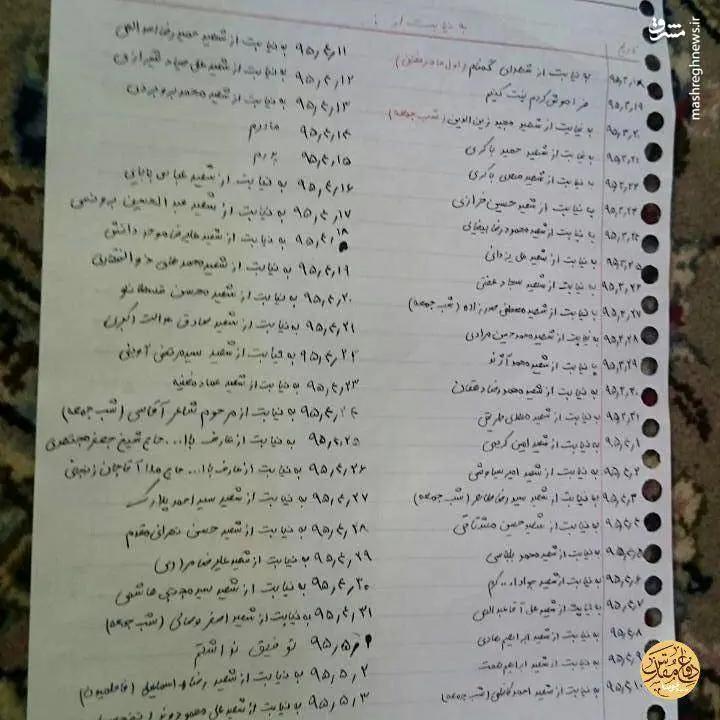 به نیابت از :
تاریخ
۹۵,۳,۱۸ به نیابت از شهدای گمنام (اول ماه رمضان)
۹۵,۳,۱۹ فراموش کردم نیت کنیم
۹۵,۳,۲۰ به نیابت از شهید مجید زین الدین (شب جمعه)
۹۵,۳,۲۱ به نیابت از شهید حمید باکری
۹۵,۳,۲۲ به نیابت از شهید مهدی باکری
۹۵,۳,۲۳ به نیابت از شهید حسین خرازی
۹۵,۳,۲۴ به نیابت از شهید محمودرضا بیضایی
۹۵,۳,۲۵ به نیابت از شهید علی یزدانی
۹۵,۳,۲۶ به نیابت از شهید سجاد عفتی
۹۵,۳,۲۷ به نیابت از شهید مصطفی صدرزاده (شب جمعه)
۹۵,۳,۲۸ به نیابت از شهید محمدحسین مرادی
۹۵,۳,۲۹ به نیابت از شهید محمد آژند
۹۵,۳,۳۰ به نیابت از شهید محمدرضا دهقان
۹۵,۳,۳۱ به نیابت از شهید مهدی
۹۵,۴,۱ به نیابت از شهید امین کریمی
۹۵,۴,۲ به نیابت از شهید امیر سیاوشی
۹۵,۴,۳ به نیابت از شهید سیدرضا طاهر (شب جمعه)
۹۵,۴,۴ به نیابت از شهید حسین مشتاقی
۹۵,۴,۵ به نیابت از شهید محمد بلباسی
۹۵,۴,۶ به نیابت از شهید جواد ا... کرم
۹۵,۴,۷ به نیابت از شهید علی آقا عبداللهی
۹۵,۴,۸ به نیابت از شهید ابراهیم هادی
۹۵,۴,۹ به نیابت از شهید ابراهیم همت
۹۵,۴,۱۰ به نیابت از شهید احمد کاظمی (شب جمعه)
۹۵,۴,۱۱ به نیابت از شهید حمیدرضا اسداللهی
۹۵,۴,۱۲ به نیابت از شهید علی صیاد شیرازی
۹۵,۴,۱۳ به نیابت از شهید محمد بروجردی
۹۵,۴,۱۴ مادرم
۹۵,۴,۱۵ پدرم
۹۵,۴,۱۶ به نیابت از شهید عباس بابایی
۹۵,۴,۱۷ به نیابت از شهید عبدالحسین برونسی
۹۵,۴,۱۸ به نیابت از شهید علیرضا موحد دانش
۹۵,۴,۱۹ به نیابت از شهید محمدعلی
۹۵,۴,۲۰ به نیابت از شهید محسن
۹۵,۴,۲۱ به نیابت از شهید صادق عدالت اکبری
۹۵,۴,۲۲ به نیابت از شهید سید مرتضی آوینی
۹۵,۴,۲۳ به نیابت از شهید عماد مغنیه
۹۵,۴,۲۴ به نیابت از مرحوم شاعر آقاسی (شب جمعه)
۹۵,۴,۲۵ به نیابت از عارف باا... حاج شیخ جعفر مجتهدی
۹۵,۴,۲۶ به نیابت از عارف باا... حاج ملا آقاجان زنجانی
۹۵,۴,۲۷ به نیابت از شهید سید احمد پلارک
۹۵,۴,۲۸ به نیابت از شهید حسن تهرانی مقدم
۹۵,۴,۲۹ به نیابت از شهید علیرضا مرادی
۹۵,۴,۳۰ به نیابت از شهید سید مجتبی هاشمی
۹۵,۴,۳۱ به نیابت از شهید اصغر وصالی (شب جمعه)
۹۵,۵,۱ توفیق نداشتم
۹۵,۵,۲ به نیابت از شهید رضا اسماعیلی (فاطمیون)
۹۵,۵,۳ به نیابت از شهید علی محمودوند
مشرق
mashreghnews.ir
دفاع مقدس